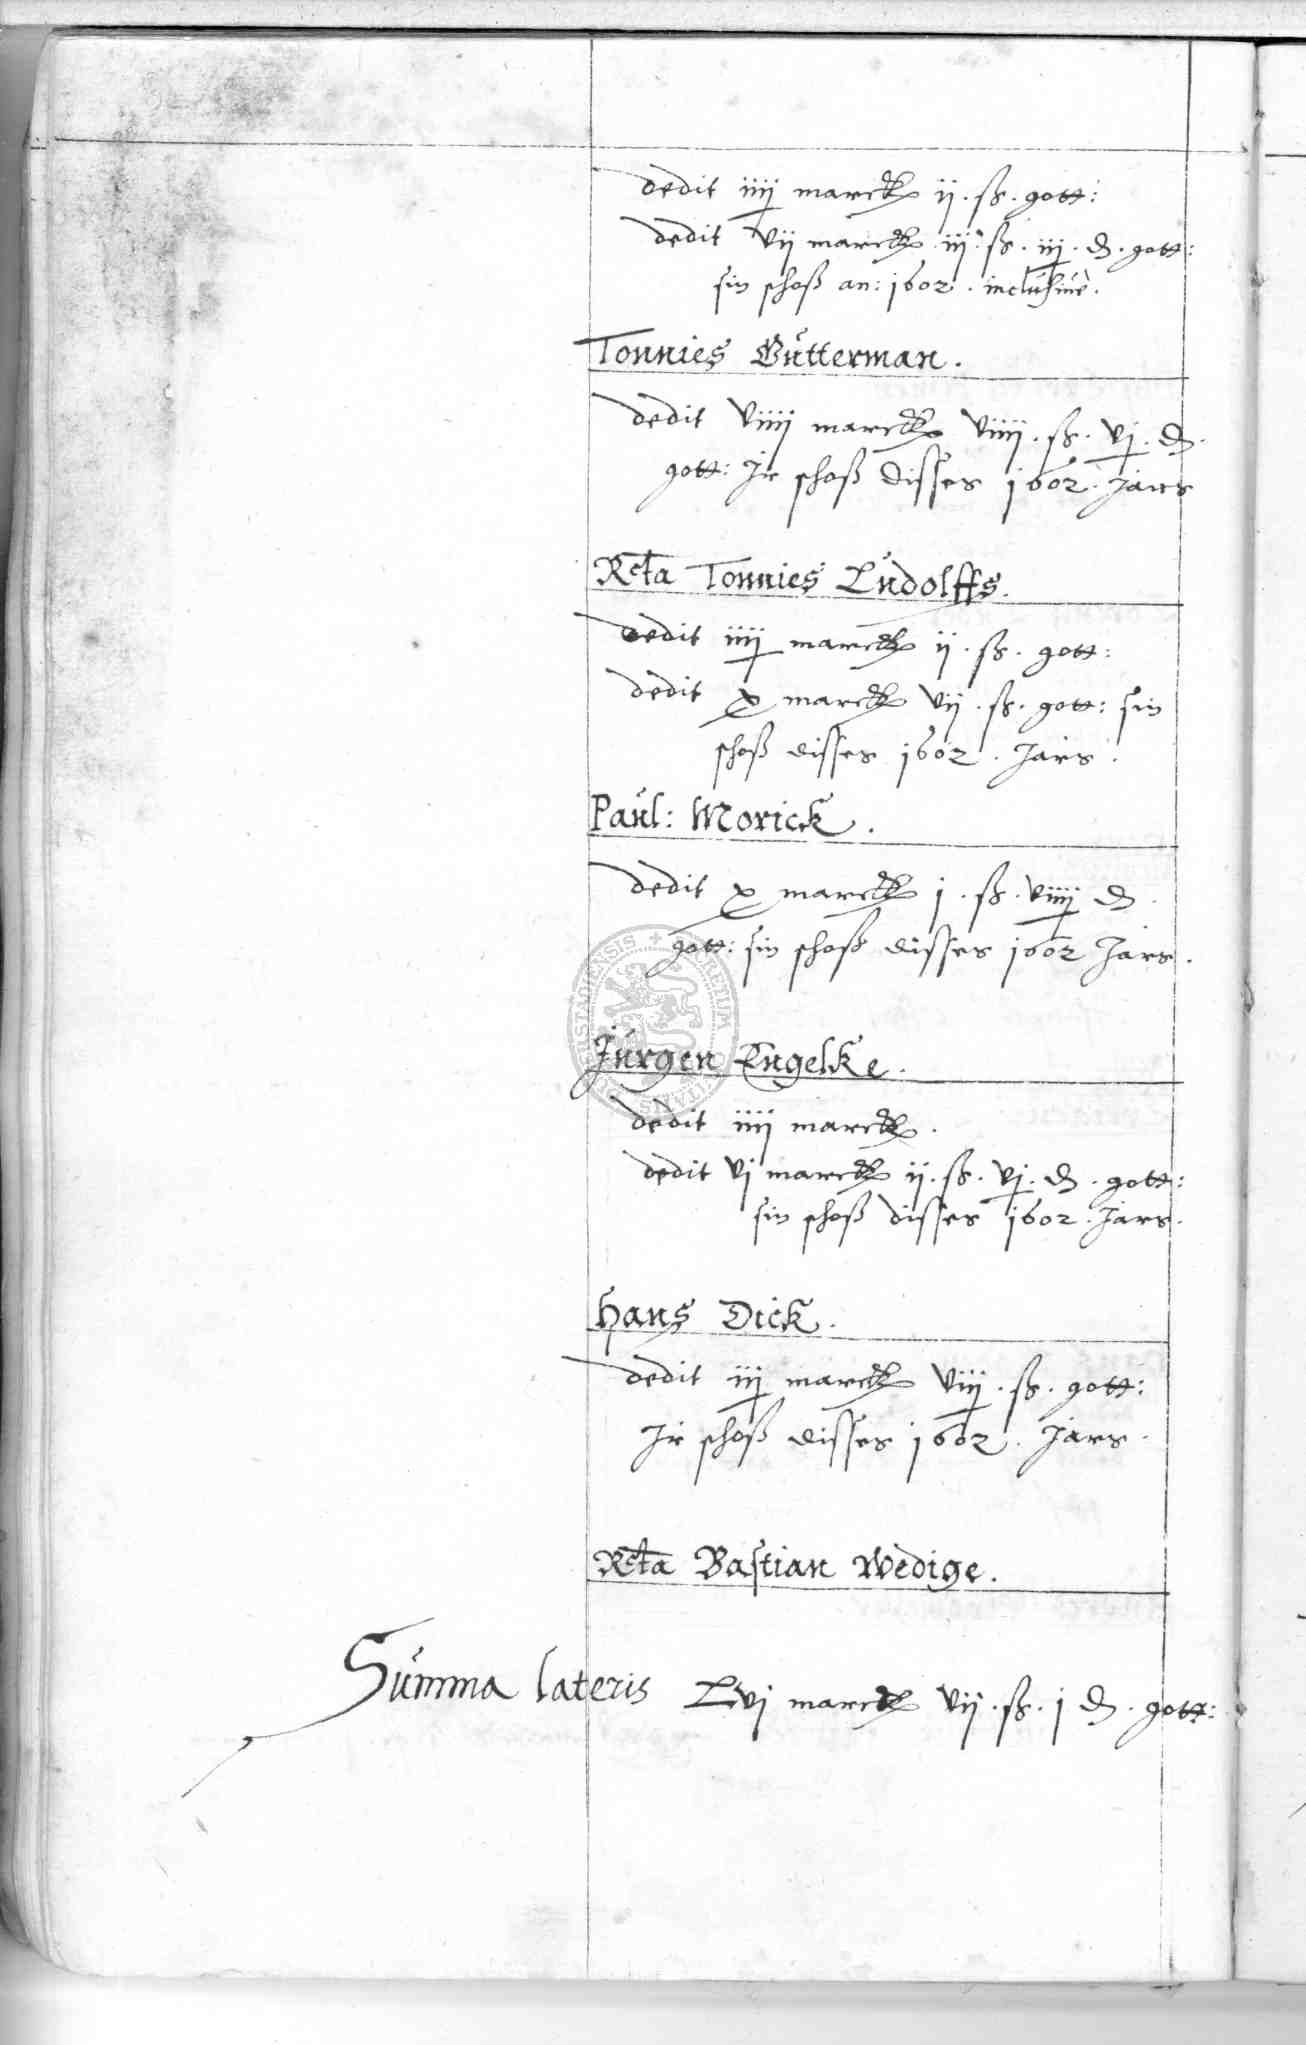 dedit iiij marck ij . ß . gott:
dedit vij marck iij . ß . iij . ₰ . gott:
sin schoß an: 1602 . inclusiue .
Tonnies Gutterman .
dedit viiij marck viiij . ß . vj . ₰ .
gott: Jr schoß disses 1602 . Jars
Rcta Tonnies Ludolffs .
dedit iiij marck ij . ß . gott:
dedit x marck vij . ß . gott: sin
schoß disses 1602 . Jars .
Paul: Morick .
dedit x marck j . ß . viiij ₰ .
gott: sin schoß disses 1602 Jars .
Jurgen Engelke .
dedit iiij marck .
dedit vj marck ij . ß . vj . ₰ . gott:
sin schoß disses 1602 . Jars .
Hans Dick .
dedit iij marck viij . ß . gott:
Jr schoß disses 1602 . Jars .
Rcta Bastian Wedige .
Summa lateris Lvj marck vij . ß . j ₰ . gott: